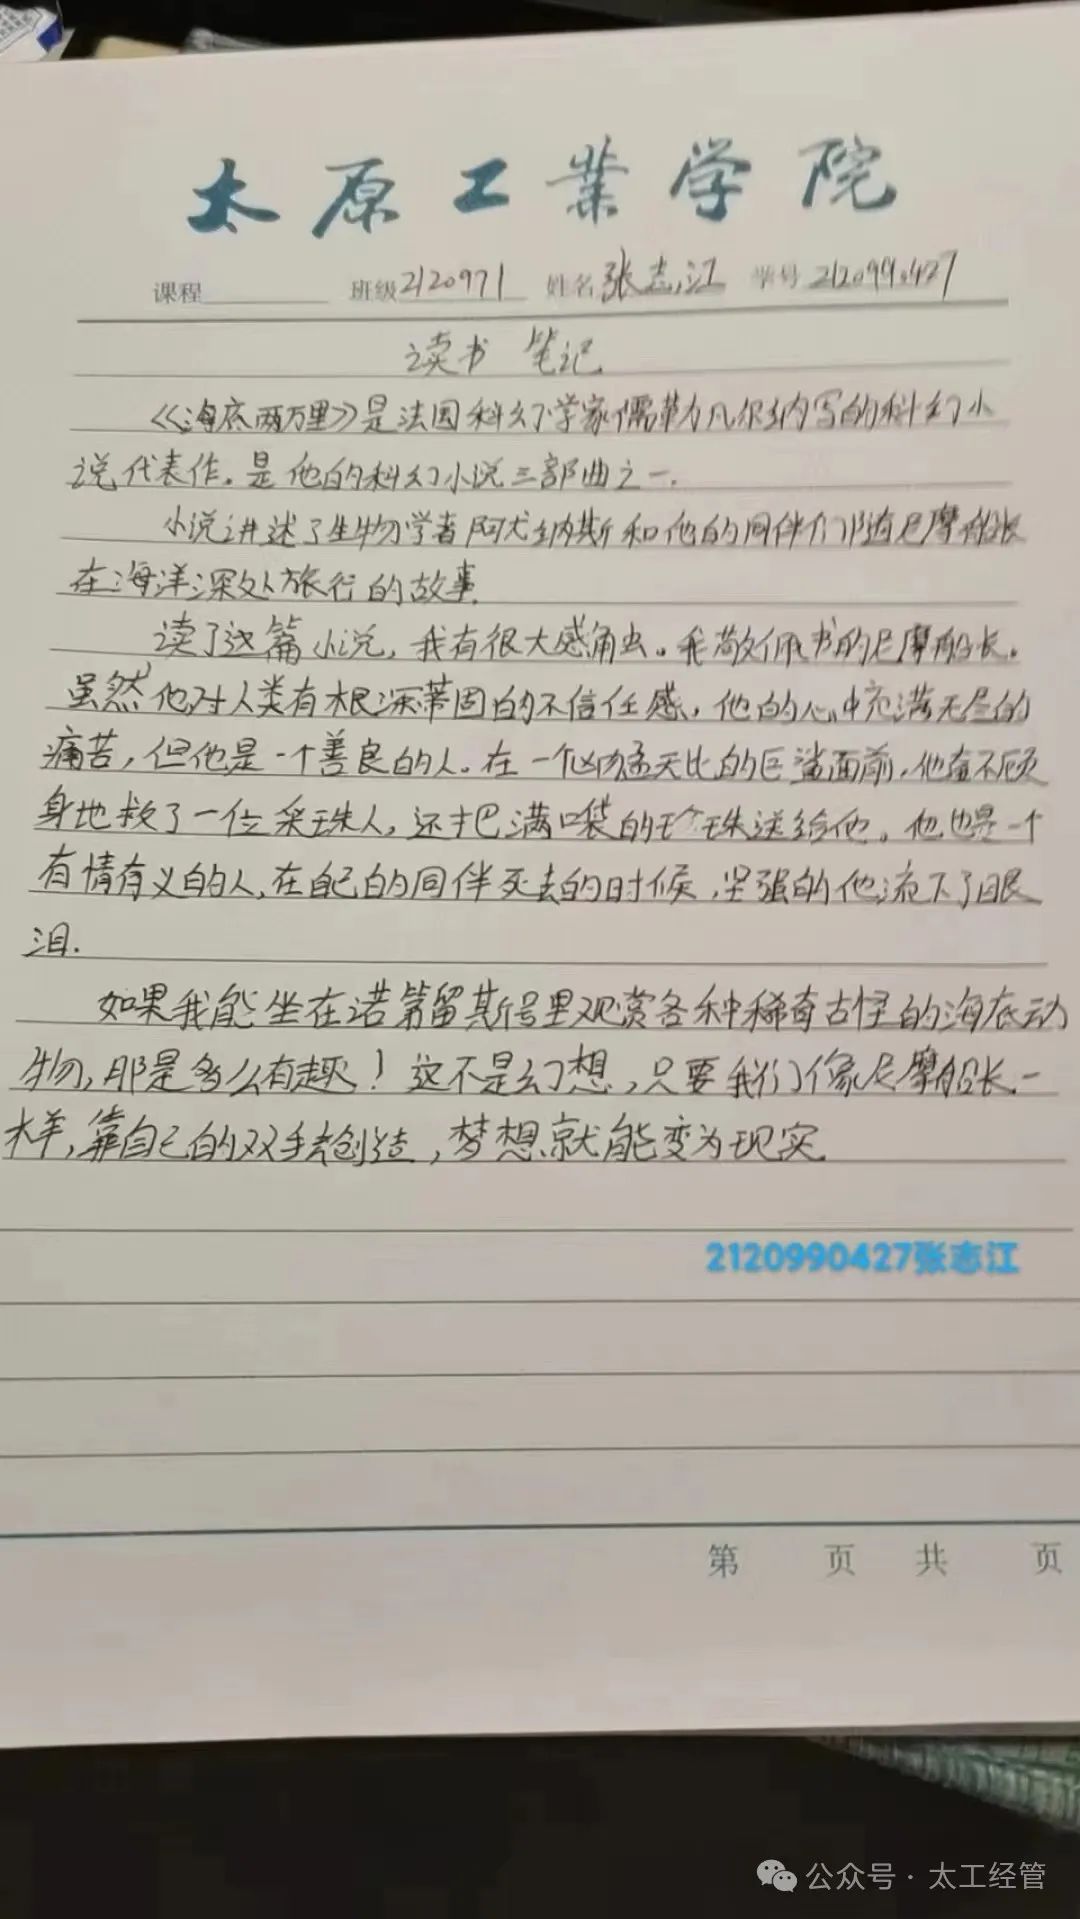 太原工業学院
课程 班级2120971 姓名张志江 学号2120990427
读书 笔记
《海底两万里》是法国科幻学家儒勒凡尔纳写的科幻小
说代表作。是他的科幻小说三部曲之一.
小说讲述了生物学者阿尤纳斯和他的同伴们随尼摩船长
在海洋深处旅行的故事.
读了这篇小说，我有很大感触。我敬佩书的尼摩船长。
虽然他对人类有根深蒂固的不信任感，他的心中充满无尽的
痛苦，但他是一个善良的人。在一个凶猛无比的巨鲨面前，他奋不顾
身地救了一位采珠人，还把满口袋的珍珠送给他。他也是一个
有情有义的人,在自己的同伴死去的时候,坚强的他流下了眼
泪.
如果我能坐在诺第留斯号里观赏各种稀奇古怪的海底动
物,那是多么有趣！这不是幻想,只要我们像尼摩船长一
样,靠自己的双手去创造,梦想就能变为现实.
2120990427张志江
第 页 共 页
公众号·太工经管